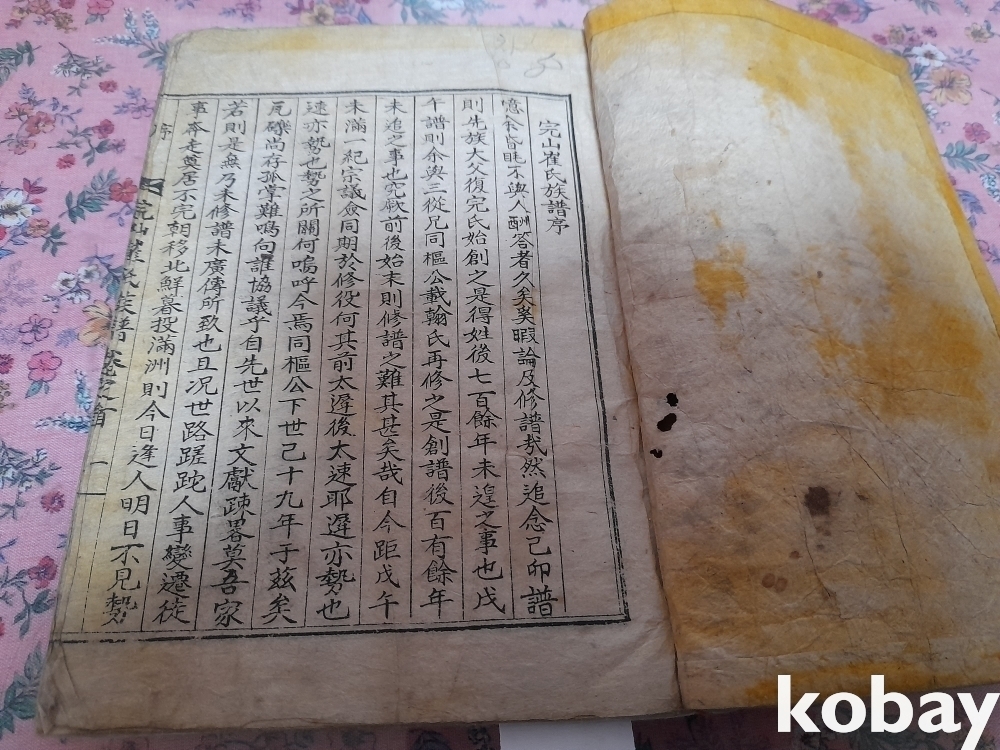 完山崔氏族譜序
憶余昏眊不與人酬答者久矣奚暇論及修譜哉然追念己卯譜
則先族大父復完氏始創之是得姓後七百餘年未遑之事也戊
午譜則余與三從兄同樞公載翰氏再修之是創譜後百有餘年
未追之事也究厥前後始末則修譜之難其甚矣哉自今距戊午
未滿一紀宗議僉同期於修役何其前太遲後太速耶遲亦勢也
速亦勢也勢之所關何嗚呼今焉同樞公下世已十九年于茲矣
瓦礫尚存孤掌難鳴向誰協議乎自先世以來文獻疎畧莫吾家
若則是無乃未修譜未廣傳所致也且况世路蹉跎人事變遷徒
事奔走奠居不完朝移北鮮暮投滿洲則今日逢人明日不見勢
序
完山崔氏族譜卷之首
一
kobay